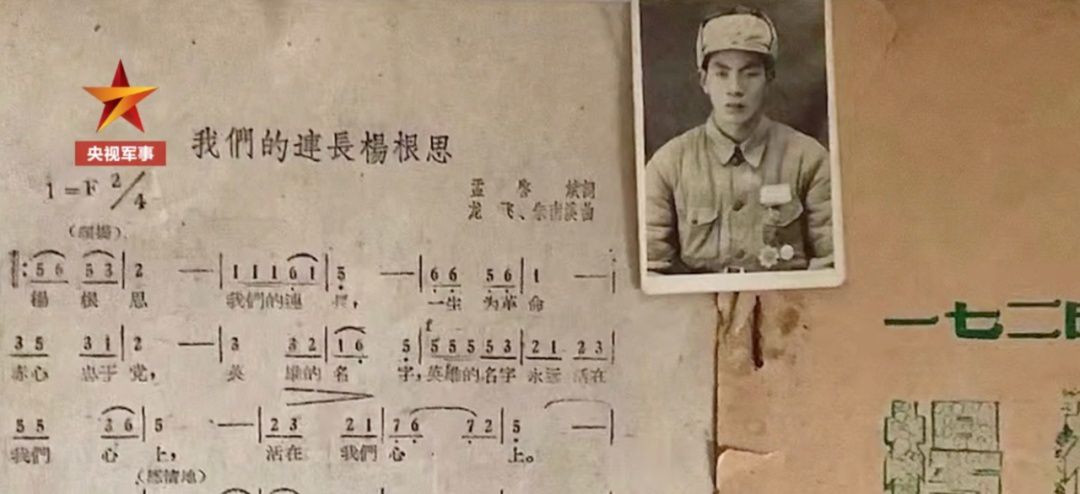 央视军事
我們的連長楊根思
1=F 2/4
孟 詞
龙 飞、朱南溪曲
56 53 2 — 1116i 5 — 66 56 1 —
楊 根 思 我們的連 長, 一生 为革命
35 31 2 — 3 32 16 5 555 53 21 23
赤心 忠于 党, 英 雄的 名 字, 英雄的 名字 永远 活在
f
55 36 5 — 23 21 76 72 5
我們 心 上, 活在 我們 心 上。
一七二